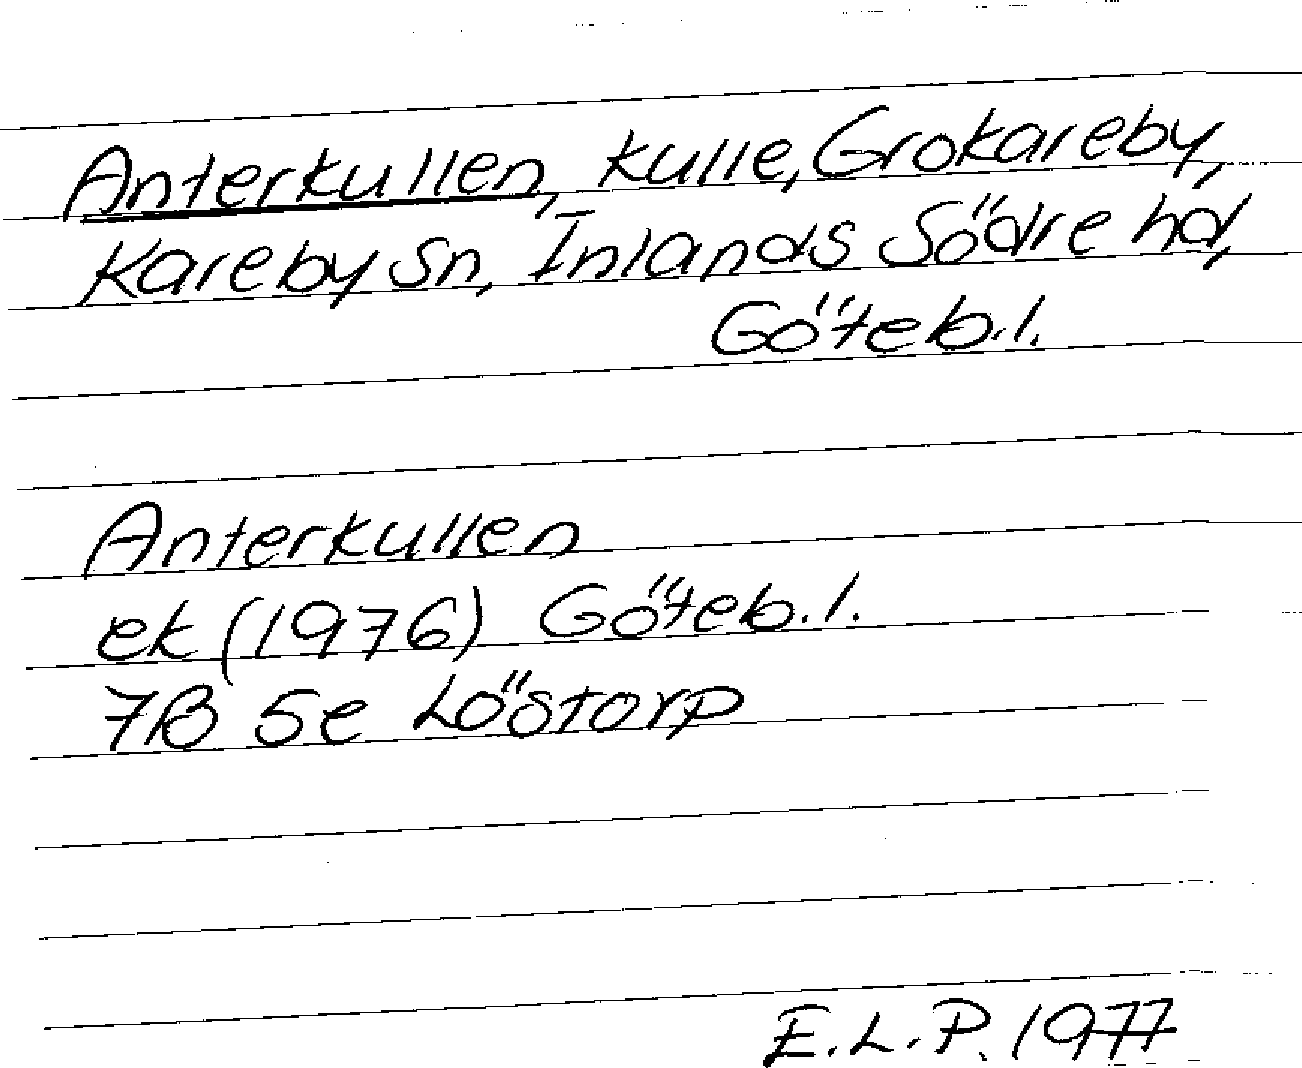 Anterkullen, kulle, Grokareby,
Kareby sn, Inlands Södre hd,
Göteb.l.
Anterkullen
ek (1976) Göteb.l.
7B 5e Löstorp
E.L.P. 1977